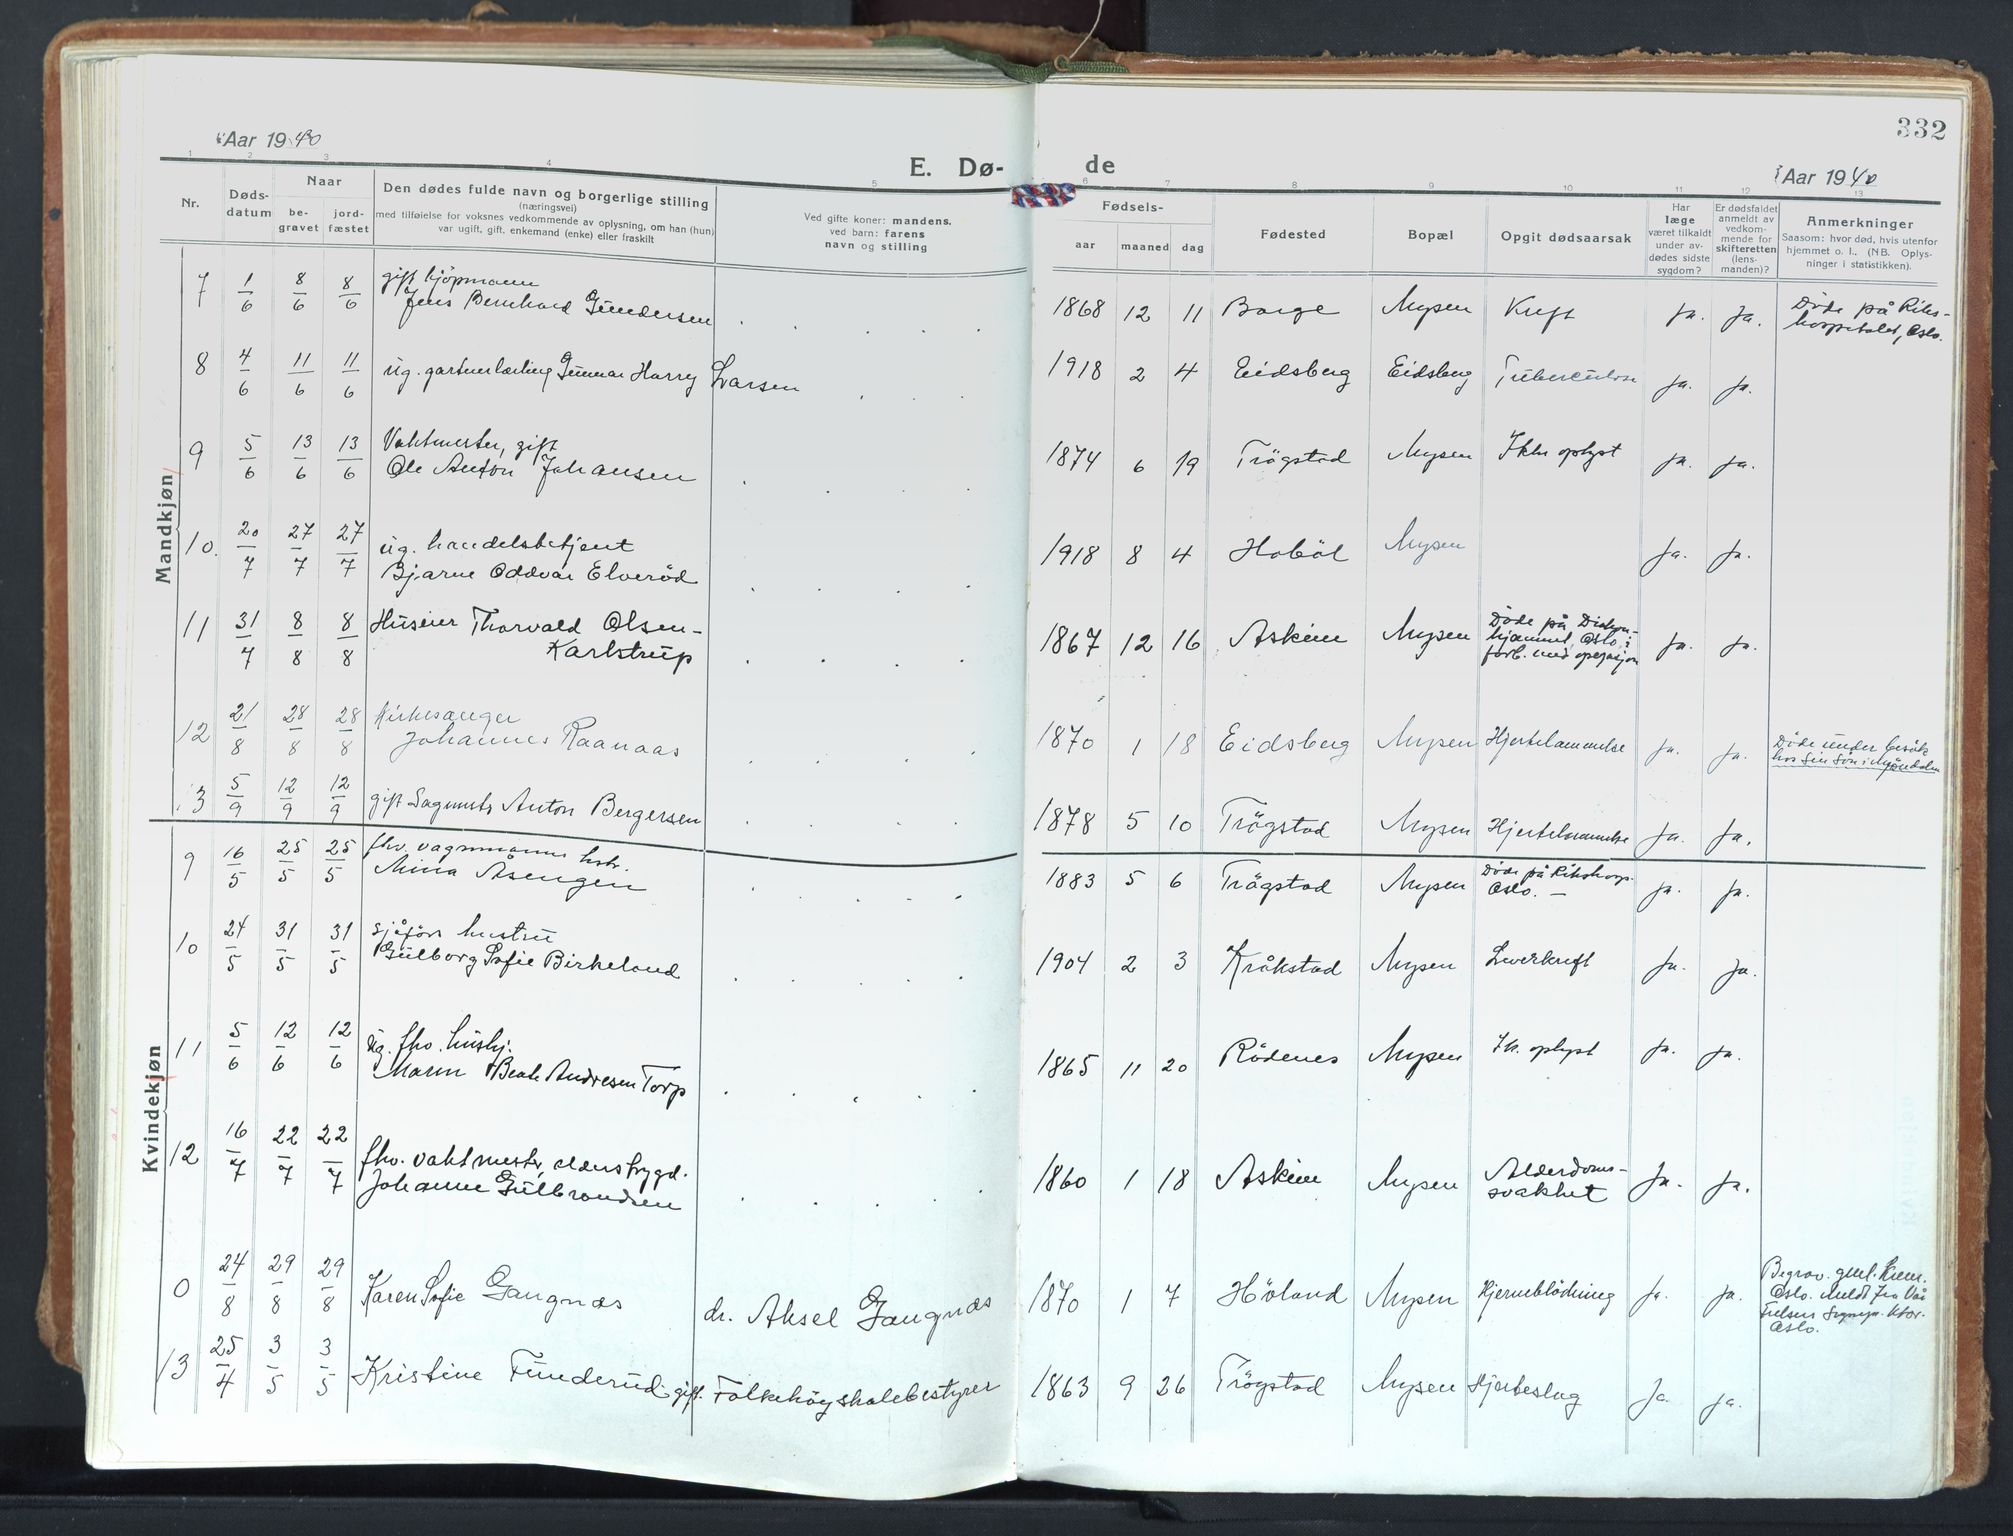 332
Aar 1940
E. Dø-
de
Aar 1940
1 2 3 4 5 6 7 8 9 10 11 12 13
Nr.
Døds-
datum
Naar
be-
gravet
jord-
fæstet
Den dødes fulde navn og borgerlige stilling
(næringsvei)
med tilføielse for voksnes vedkommende av oplysning, om han (hun)
var ugift, gift, enkemand (enke) eller fraskilt
Ved gifte koner: mandens.
ved barn: farens
navn og stilling
Fødsels-
aar maaned dag
Fødested
Bopæl
Opgit dødsaarsak
Har
læge
været tilkaldt
under av-
dødes sidste
sygdom?
Er dødsfaldet
anmeldt av
vedkom-
mende for
skifteretten
(lens-
manden)?
Anmerkninger
Saasom: hvor død, hvis utenfor
hjemmet o. l.. (NB. Oplys-
ninger i statistikken).
Mandkjøn
7 1/6 8/6 8/6 gift kjöpmann
Jens Bernhard Gundersen 1868 12 11 Borge Mysen Kreft Ja. Ja. Döde på Riks-
hospitalet, Oslo.
8 4/6 11/6 11/6 ug. gartnerlærling Gunnar Harry Larsen 1918 2 4 Eidsberg Eidsberg Tuberculose Ja. Ja.
9 5/6 13/6 13/6 Vaktmester, gift
Ole Anton Johansen 1874 6 19 Trögstad Mysen Ikke oplyst Ja. Ja.
10. 20/7 27/7 27/7 ug. handelsbetjent
Bjarne Oddvar Elveröd 1918 8 4 Hoböl Mysen Ja. Ja.
11 31/7 8/8 8/8 Huseier Thorvald Olsen-
Karlstrup 1867 12 16 Askim Mysen Döde på Diakon-
hjemmet, Oslo, i
forb. med operasjon Ja. Ja.
12 21/8 28/8 28/8 Kirkesanger
Johannes Raanaas 1870 1 18 Eidsberg Mysen Hjertelammelse Ja. Ja. Döde under besök
hos sin sön i
13 5/9 12/9 12/9 gift Anton Bergersen 1878 5 10 Trögstad Mysen Hjertelammelse Ja. Ja.
Kvindekjøn
9 16/5 25/5 25/5 fhv. vognmanns hstr.
Mina Åsengen 1883 5 6 Trögstad Mysen Döde på Rikshosp.
Oslo. — Ja. Ja.
10 24/5 31/5 31/5 sjåförs hustru
Gulborg Sofie Birkeland 1904 2 3 Kråkstad Mysen Leverkreft Ja. Ja.
11 5/6 12/6 12/6 ug. fhv. hushj.
Maren Beate Andresen Torp 1865 11 20 Rödenes Mysen Ik. oplyst Ja. Ja.
12 16/7 22/7 22/7 fhv. vaktmester, alderstrygd.
Johanne Gulbrandsen 1860 1 18 Askim Mysen Alderdoms-
svakhet Ja. Ja.
0 24/8 29/8 29/8 Karen Sofie Gangnæs dr. Aksel Gangnæs 1870 1 7 Höland Mysen Hjerneblödning Ja. Ja. Begrav. gml. Krem.
Oslo. Meldt fra Vår
Frelsers Sognepr. ktor.
Oslo.
13 25/4 3/5 3/5 Kristine Funderud gift. Folkehögskolebestyrer 1863 9 26 Trögstad Mysen Hjerteslag Ja. Ja.